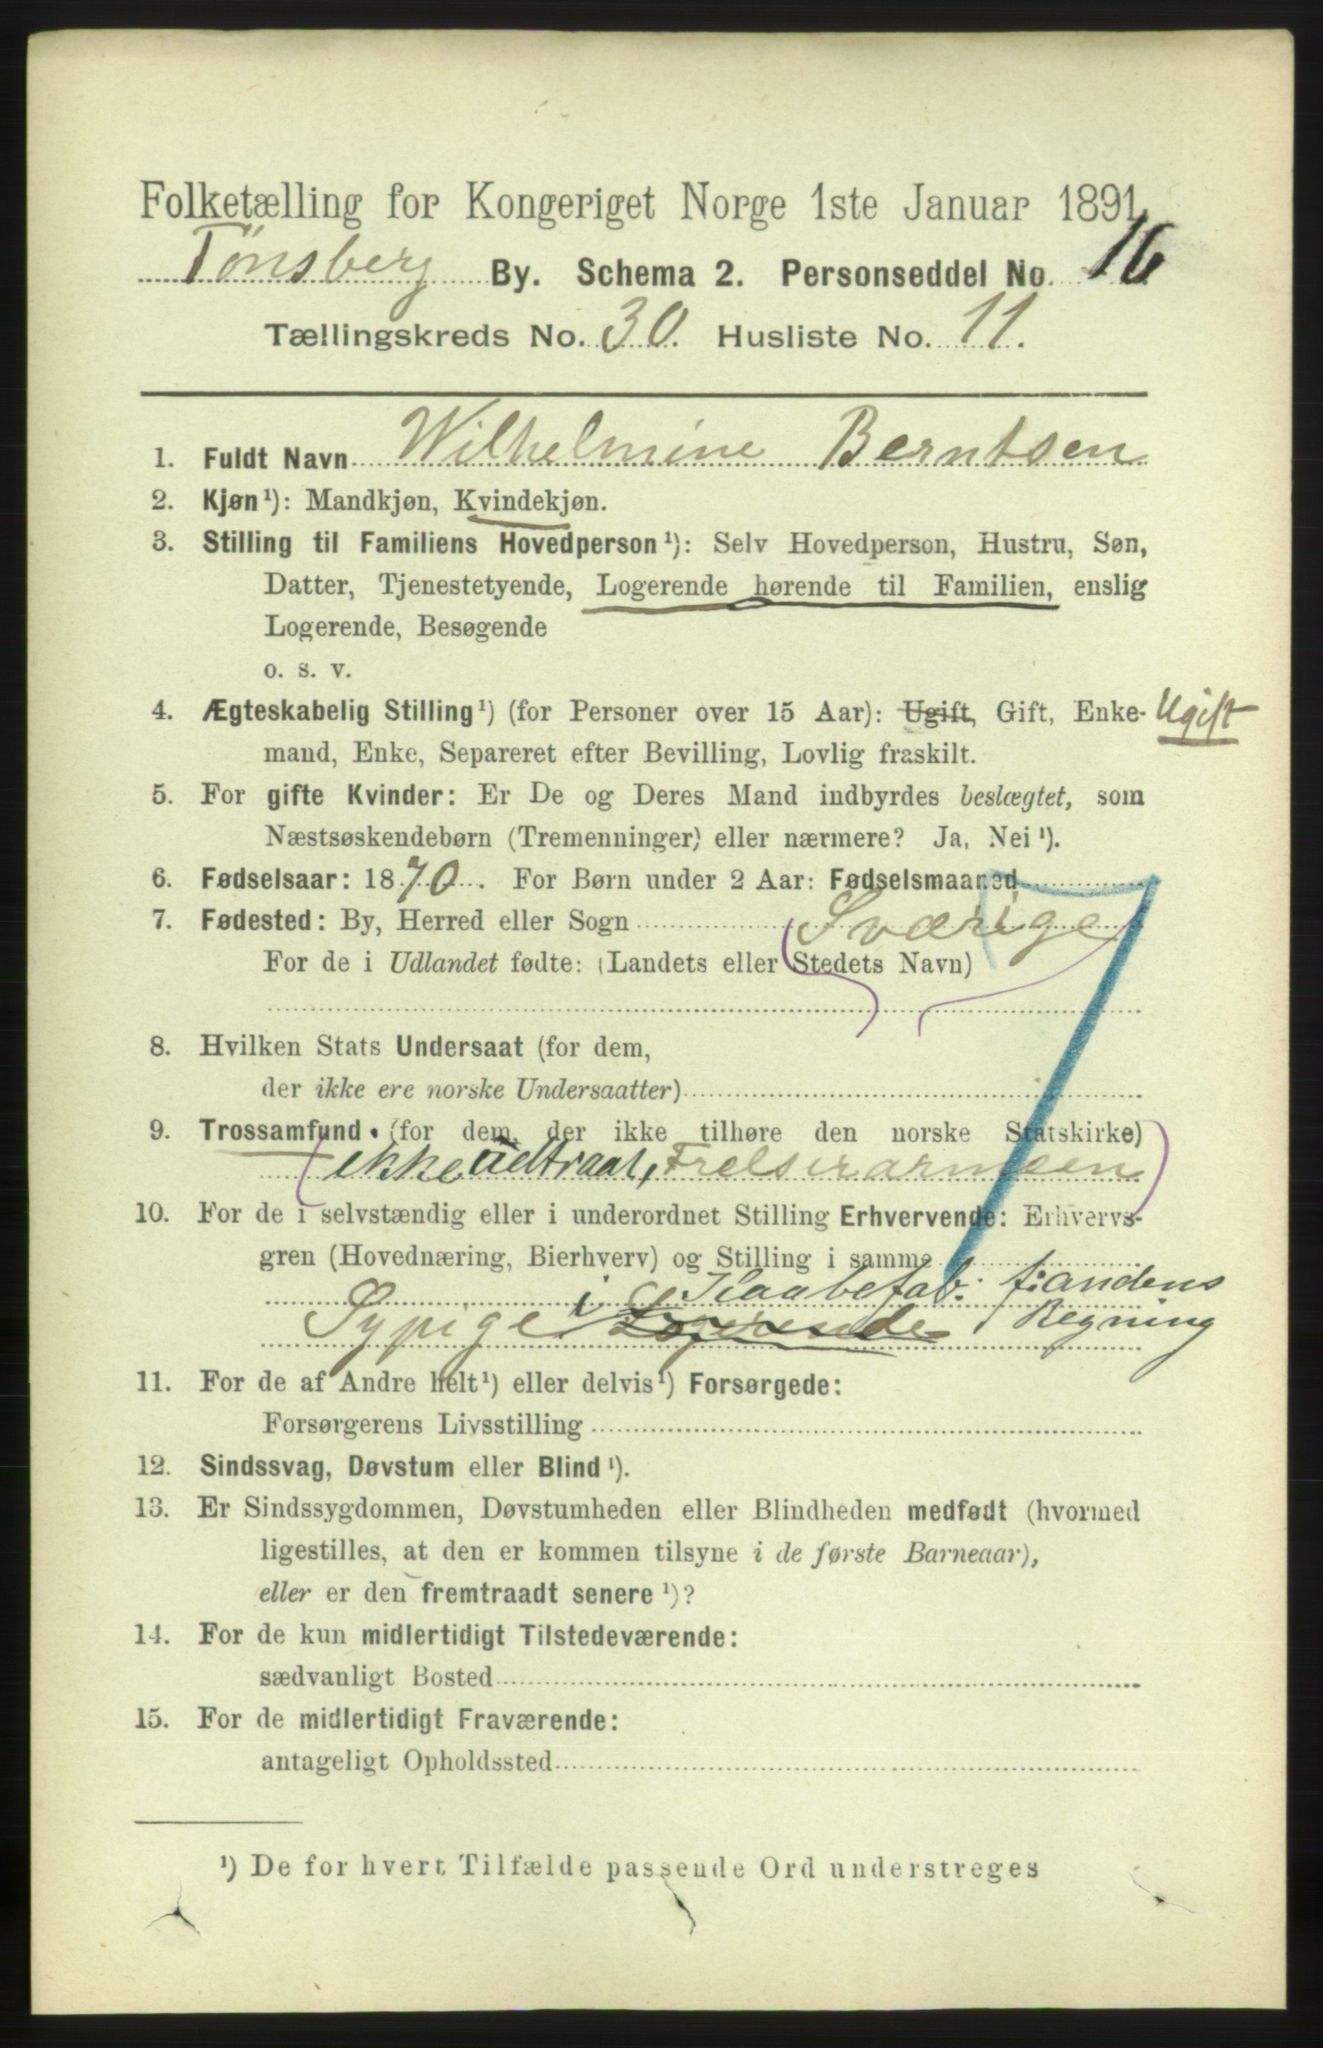 Folketælling for Kongeriget Norge 1ste Januar 1891.
Tønsberg By. Schema 2. Personseddel No. 16
Tællingskreds No. 30. Husliste No. 11.
1. Fuldt Navn Wilhelmine Berntsen
2. Kjøn¹): Mandkjøn, Kvindekjøn.
3. Stilling til Familiens Hovedperson¹): Selv Hovedperson, Hustru, Søn,
Datter, Tjenestetyende, Logerende hørende til Familien, enslig
Logerende, Besøgende
o. s. v.
4. Ægteskabelig Stilling¹) (for Personer over 15 Aar): Ugift, Gift, Enke- Ugift
mand, Enke, Separeret efter Bevilling, Lovlig fraskilt.
5. For gifte Kvinder: Er De og Deres Mand indbyrdes beslægtet, som
Næstsøskendebørn (Tremenninger) eller nærmere? Ja, Nei¹).
6. Fødselsaar: 1870. For Børn under 2 Aar: Fødselsmaaned
7. Fødested: By, Herred eller Sogn Sværige
For de i Udlandet fødte: (Landets eller Stedets Navn)
8. Hvilken Stats Undersaat (for dem,
der ikke ere norske Undersaatter)
9. Trossamfund. (for dem, der ikke tilhøre den norske Statskirke)
ikke udtraat, Frelserarmeen
10. For de i selvstændig eller i underordnet Stilling Erhvervende: Erhvervs-
gren (Hovednæring, Bierhverv) og Stilling i samme
Kaabefab. f. andens
Sypige i Logerende Regning
11. For de af Andre helt¹) eller delvis¹) Forsørgede:
Forsørgerens Livsstilling
12. Sindssvag, Døvstum eller Blind¹).
13. Er Sindssygdommen, Døvstumheden eller Blindheden medfødt (hvormed
ligestilles, at den er kommen tilsyne i de første Barneaar),
eller er den fremtraadt senere¹)?
14. For de kun midlertidigt Tilstedeværende:
sædvanligt Bosted
15. For de midlertidigt Fraværende:
antageligt Opholdssted
¹) De for hvert Tilfælde passende Ord understreges